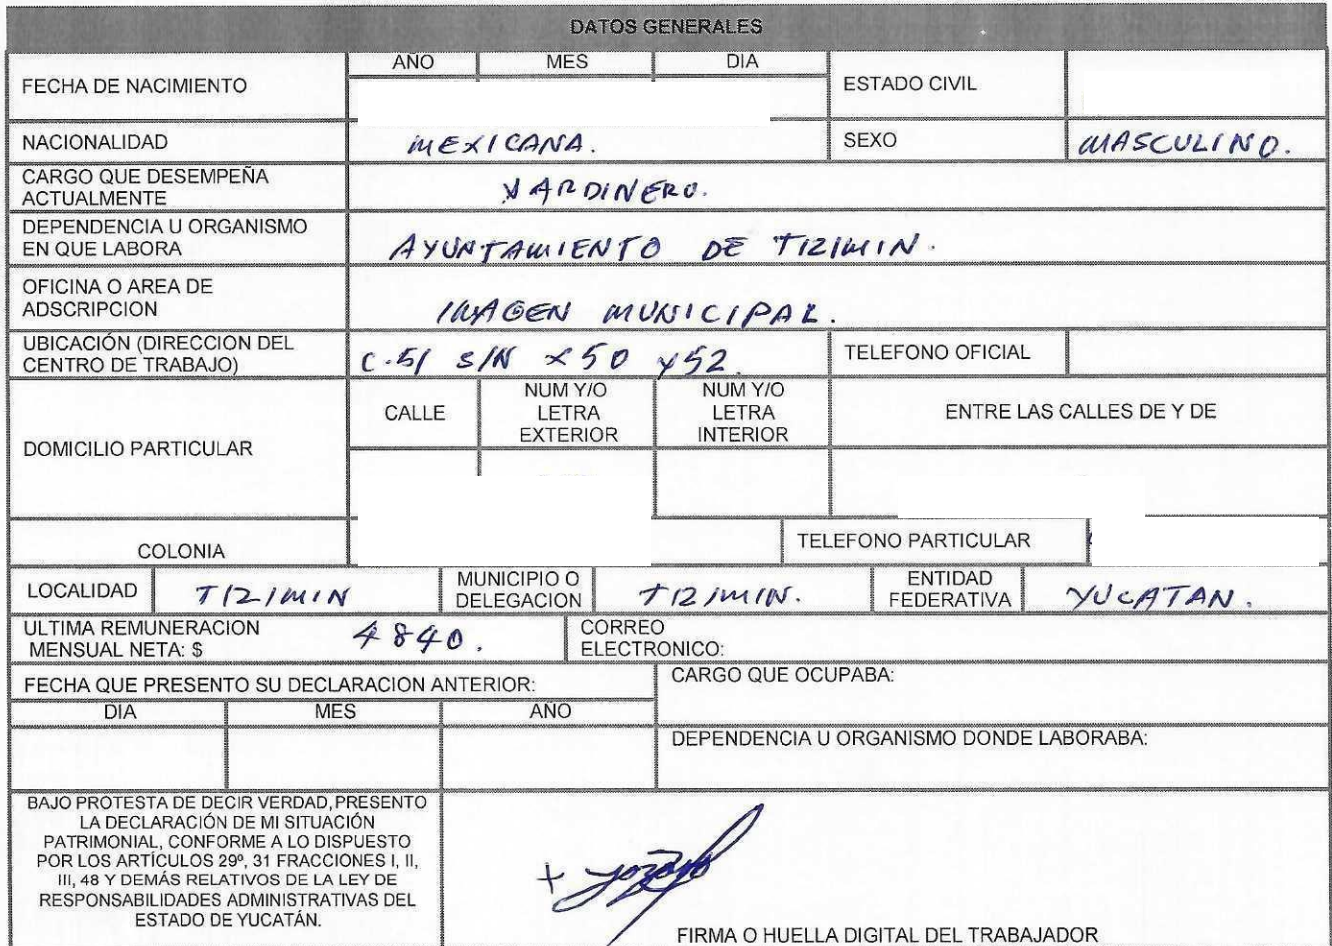 DATOS GENERALES
FECHA DE NACIMIENTO
AÑO MES DIA
ESTADO CIVIL
NACIONALIDAD MEXICANA. SEXO MASCULINO.
CARGO QUE DESEMPEÑA
ACTUALMENTE
XARDINERO.
DEPENDENCIA U ORGANISMO
EN QUE LABORA
AYUNTAMIENTO DE TIZIMIN.
OFICINA O AREA DE
ADSCRIPCION
IMAGEN MUNICIPAL.
UBICACIÓN (DIRECCION DEL
CENTRO DE TRABAJO)
C.51 S/N x50 y52.
TELEFONO OFICIAL
DOMICILIO PARTICULAR
CALLE
NUM Y/O
LETRA
EXTERIOR
NUM Y/O
LETRA
INTERIOR
ENTRE LAS CALLES DE Y DE
COLONIA
TELEFONO PARTICULAR
LOCALIDAD TIZIMIN
MUNICIPIO O
DELEGACION
TIZIMIN.
ENTIDAD
FEDERATIVA
YUCATAN.
ULTIMA REMUNERACION
MENSUAL NETA: $
4840.
CORREO
ELECTRONICO:
FECHA QUE PRESENTO SU DECLARACION ANTERIOR:
DIA MES AÑO
CARGO QUE OCUPABA:
DEPENDENCIA U ORGANISMO DONDE LABORABA:
BAJO PROTESTA DE DECIR VERDAD, PRESENTO
LA DECLARACIÓN DE MI SITUACIÓN
PATRIMONIAL, CONFORME A LO DISPUESTO
POR LOS ARTÍCULOS 29º, 31 FRACCIONES I, II,
III, 48 Y DEMÁS RELATIVOS DE LA LEY DE
RESPONSABILIDADES ADMINISTRATIVAS DEL
ESTADO DE YUCATÁN.
FIRMA O HUELLA DIGITAL DEL TRABAJADOR